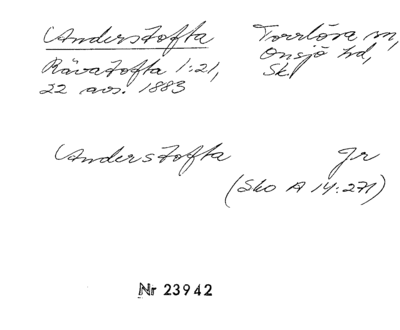 Anderstofta
Torrlösa sn,
Onsjö hd,
Sk.
Rävatofta 1:21,
22 avs. 1883
Anderstofta Jr
(Sko A 14:271)
Nr 23942